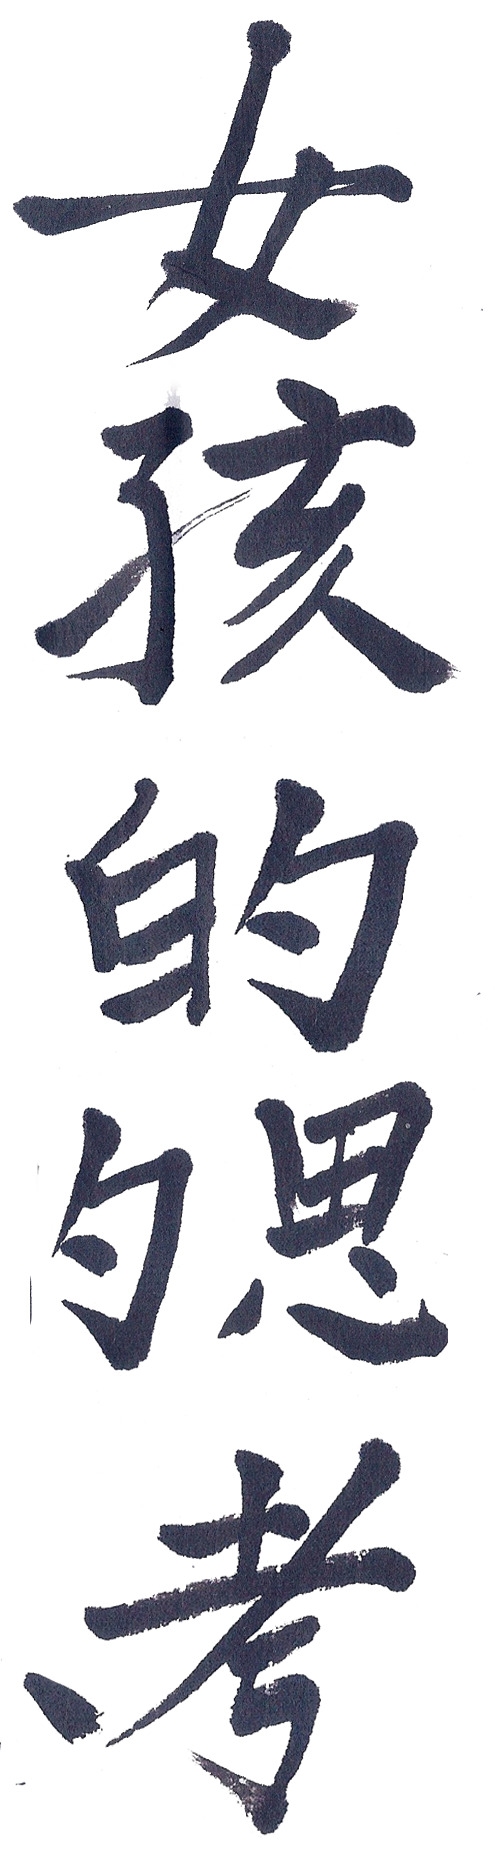 女孩的勺思考